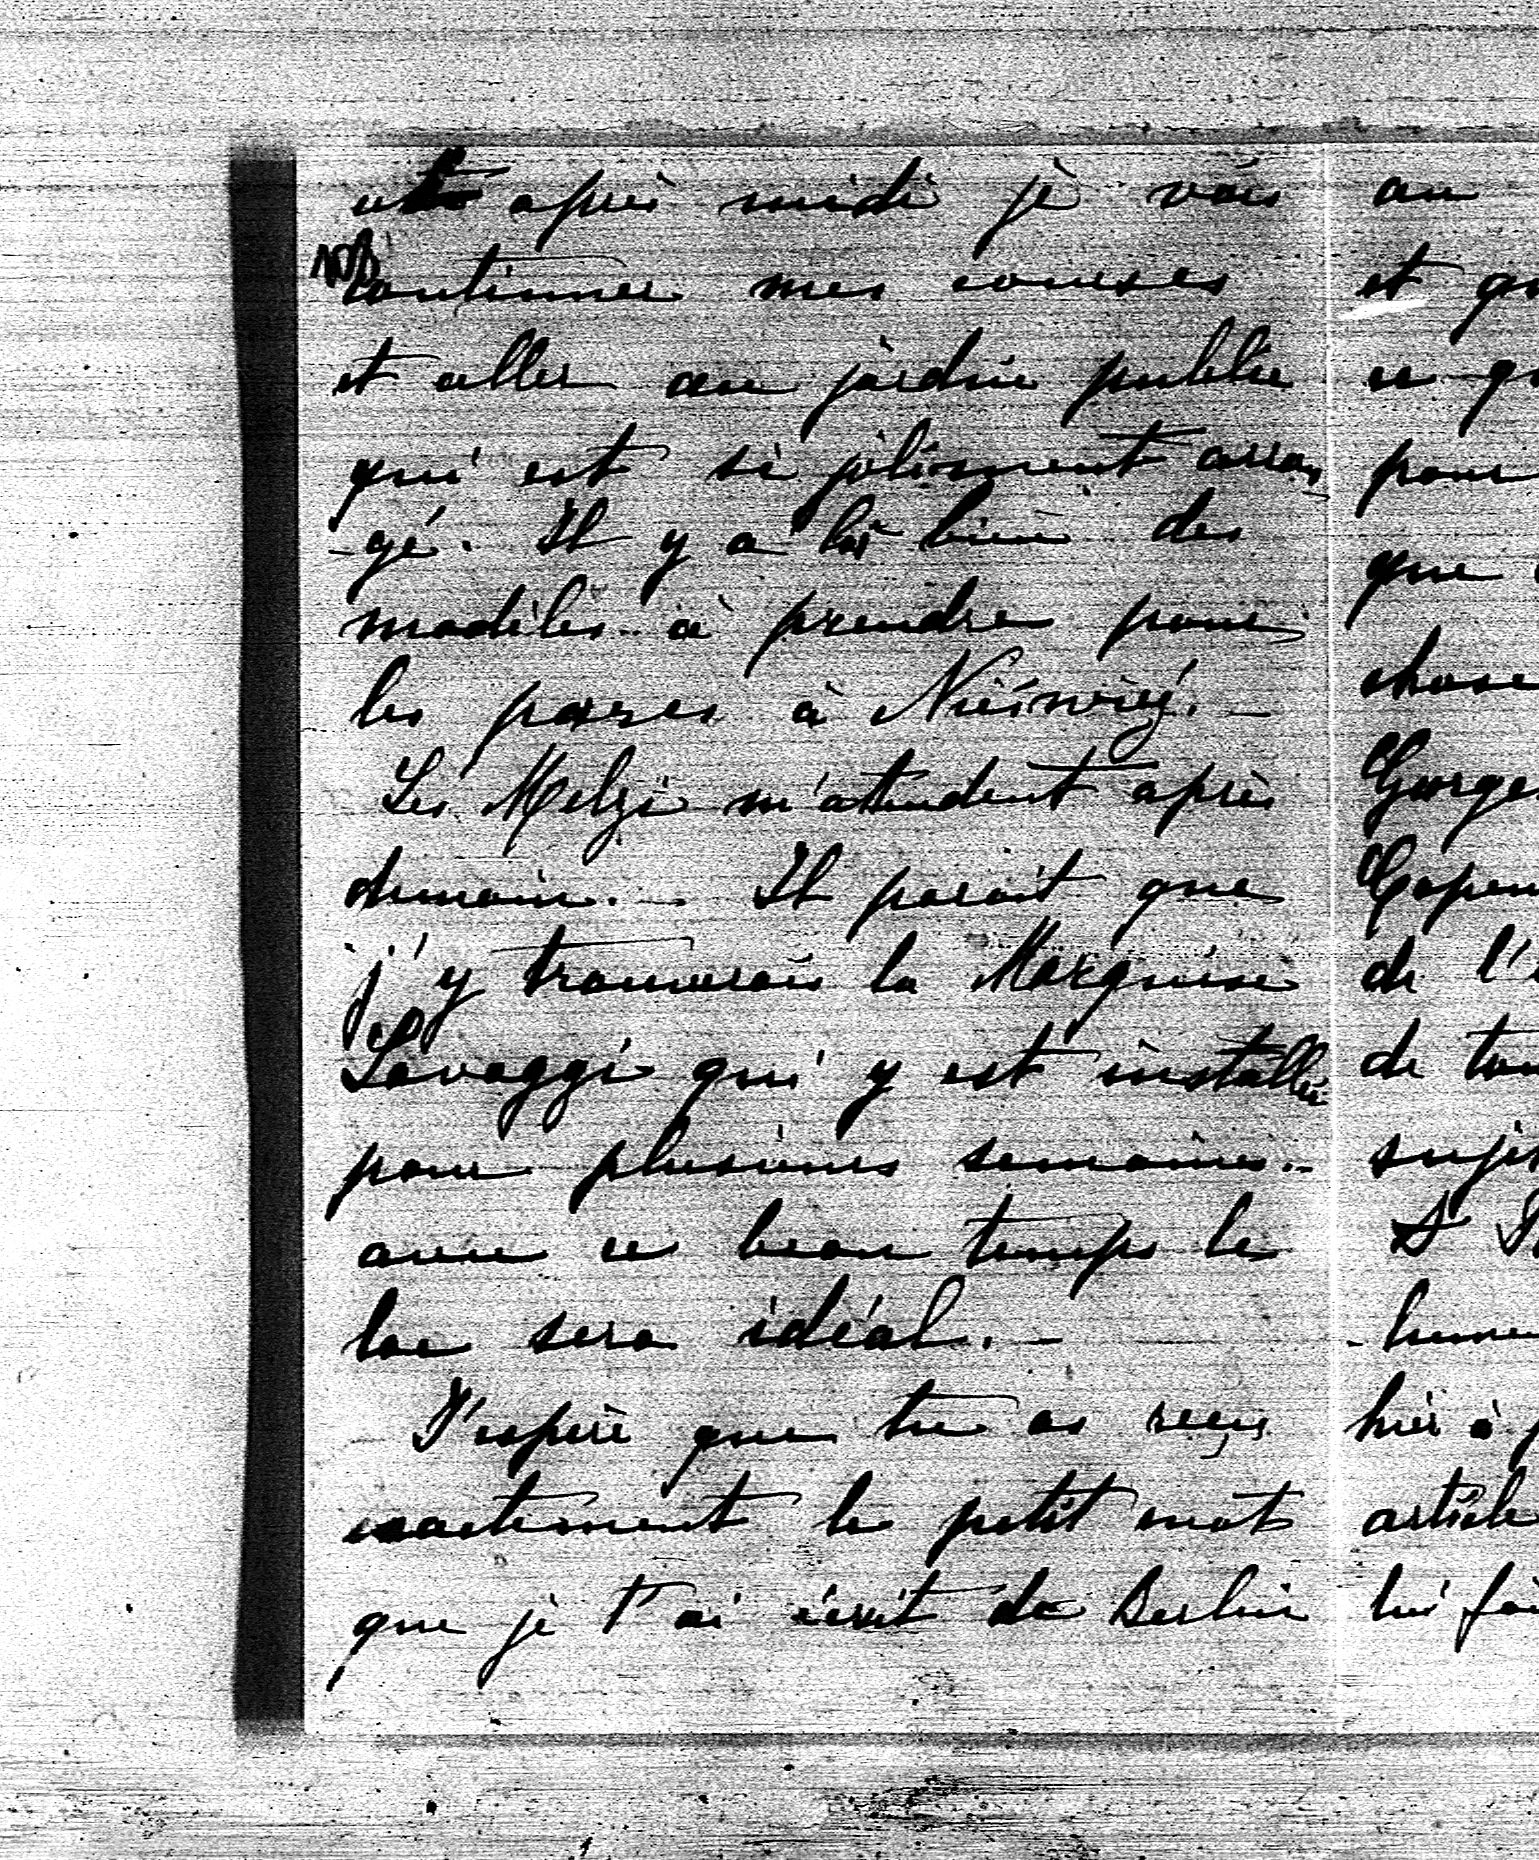 cet après midi je vais
108
continuer mes courses
et aller au jardin public
qui est si joliment arran
-gé. Il y a là bien des
modèles à prendre pour
les parcs à Nieśwież. -
Les Melzi m'attendent après
demain. - Il parait que
j'y trouverais la Marquise
Lavaggi qui y est installée
pour plusieurs semaines. -
avec ce beau temps le
lac sera idéal. -
J'espère que tu as reçu
exactement le petit mot
que je t'ai écrit de Berlin
au
et qu
ce qu
pour
que
chose
George
Copen
de l'
de tou
suje
A
- hume
hier à
article
lui fai